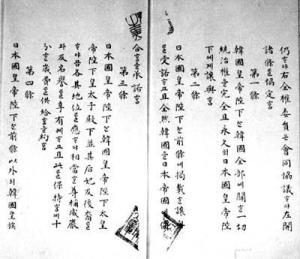 仍ᄒᆞ야右全權委員은會同協議ᄒᆞ야左開
諸條를協定홈
第一條
韓國皇帝陛下는韓國全部에關ᄒᆞᆫ一切
統治權을完全且永久히日本國皇帝陛
下에게讓與홈
第二條
日本國皇帝陛下는前條에揭載ᄒᆞᆫ讓
受諾ᄒᆞ고且全然韓國을日本帝國
合홈을承諾홈
第三條
日本國皇帝陛下는韓國皇帝陛下太皇
帝陛下皇太子殿下並其后妃及後裔로
各其地位를應ᄒᆞ야相當ᄒᆞᆫ尊稱威嚴
及名譽를享有케ᄒᆞ고且此를保持ᄒᆞ기에十
分ᄒᆞᆫ歲費를供給홈을約홈
第四條
日本國皇帝陛下는前條以外의韓國皇族